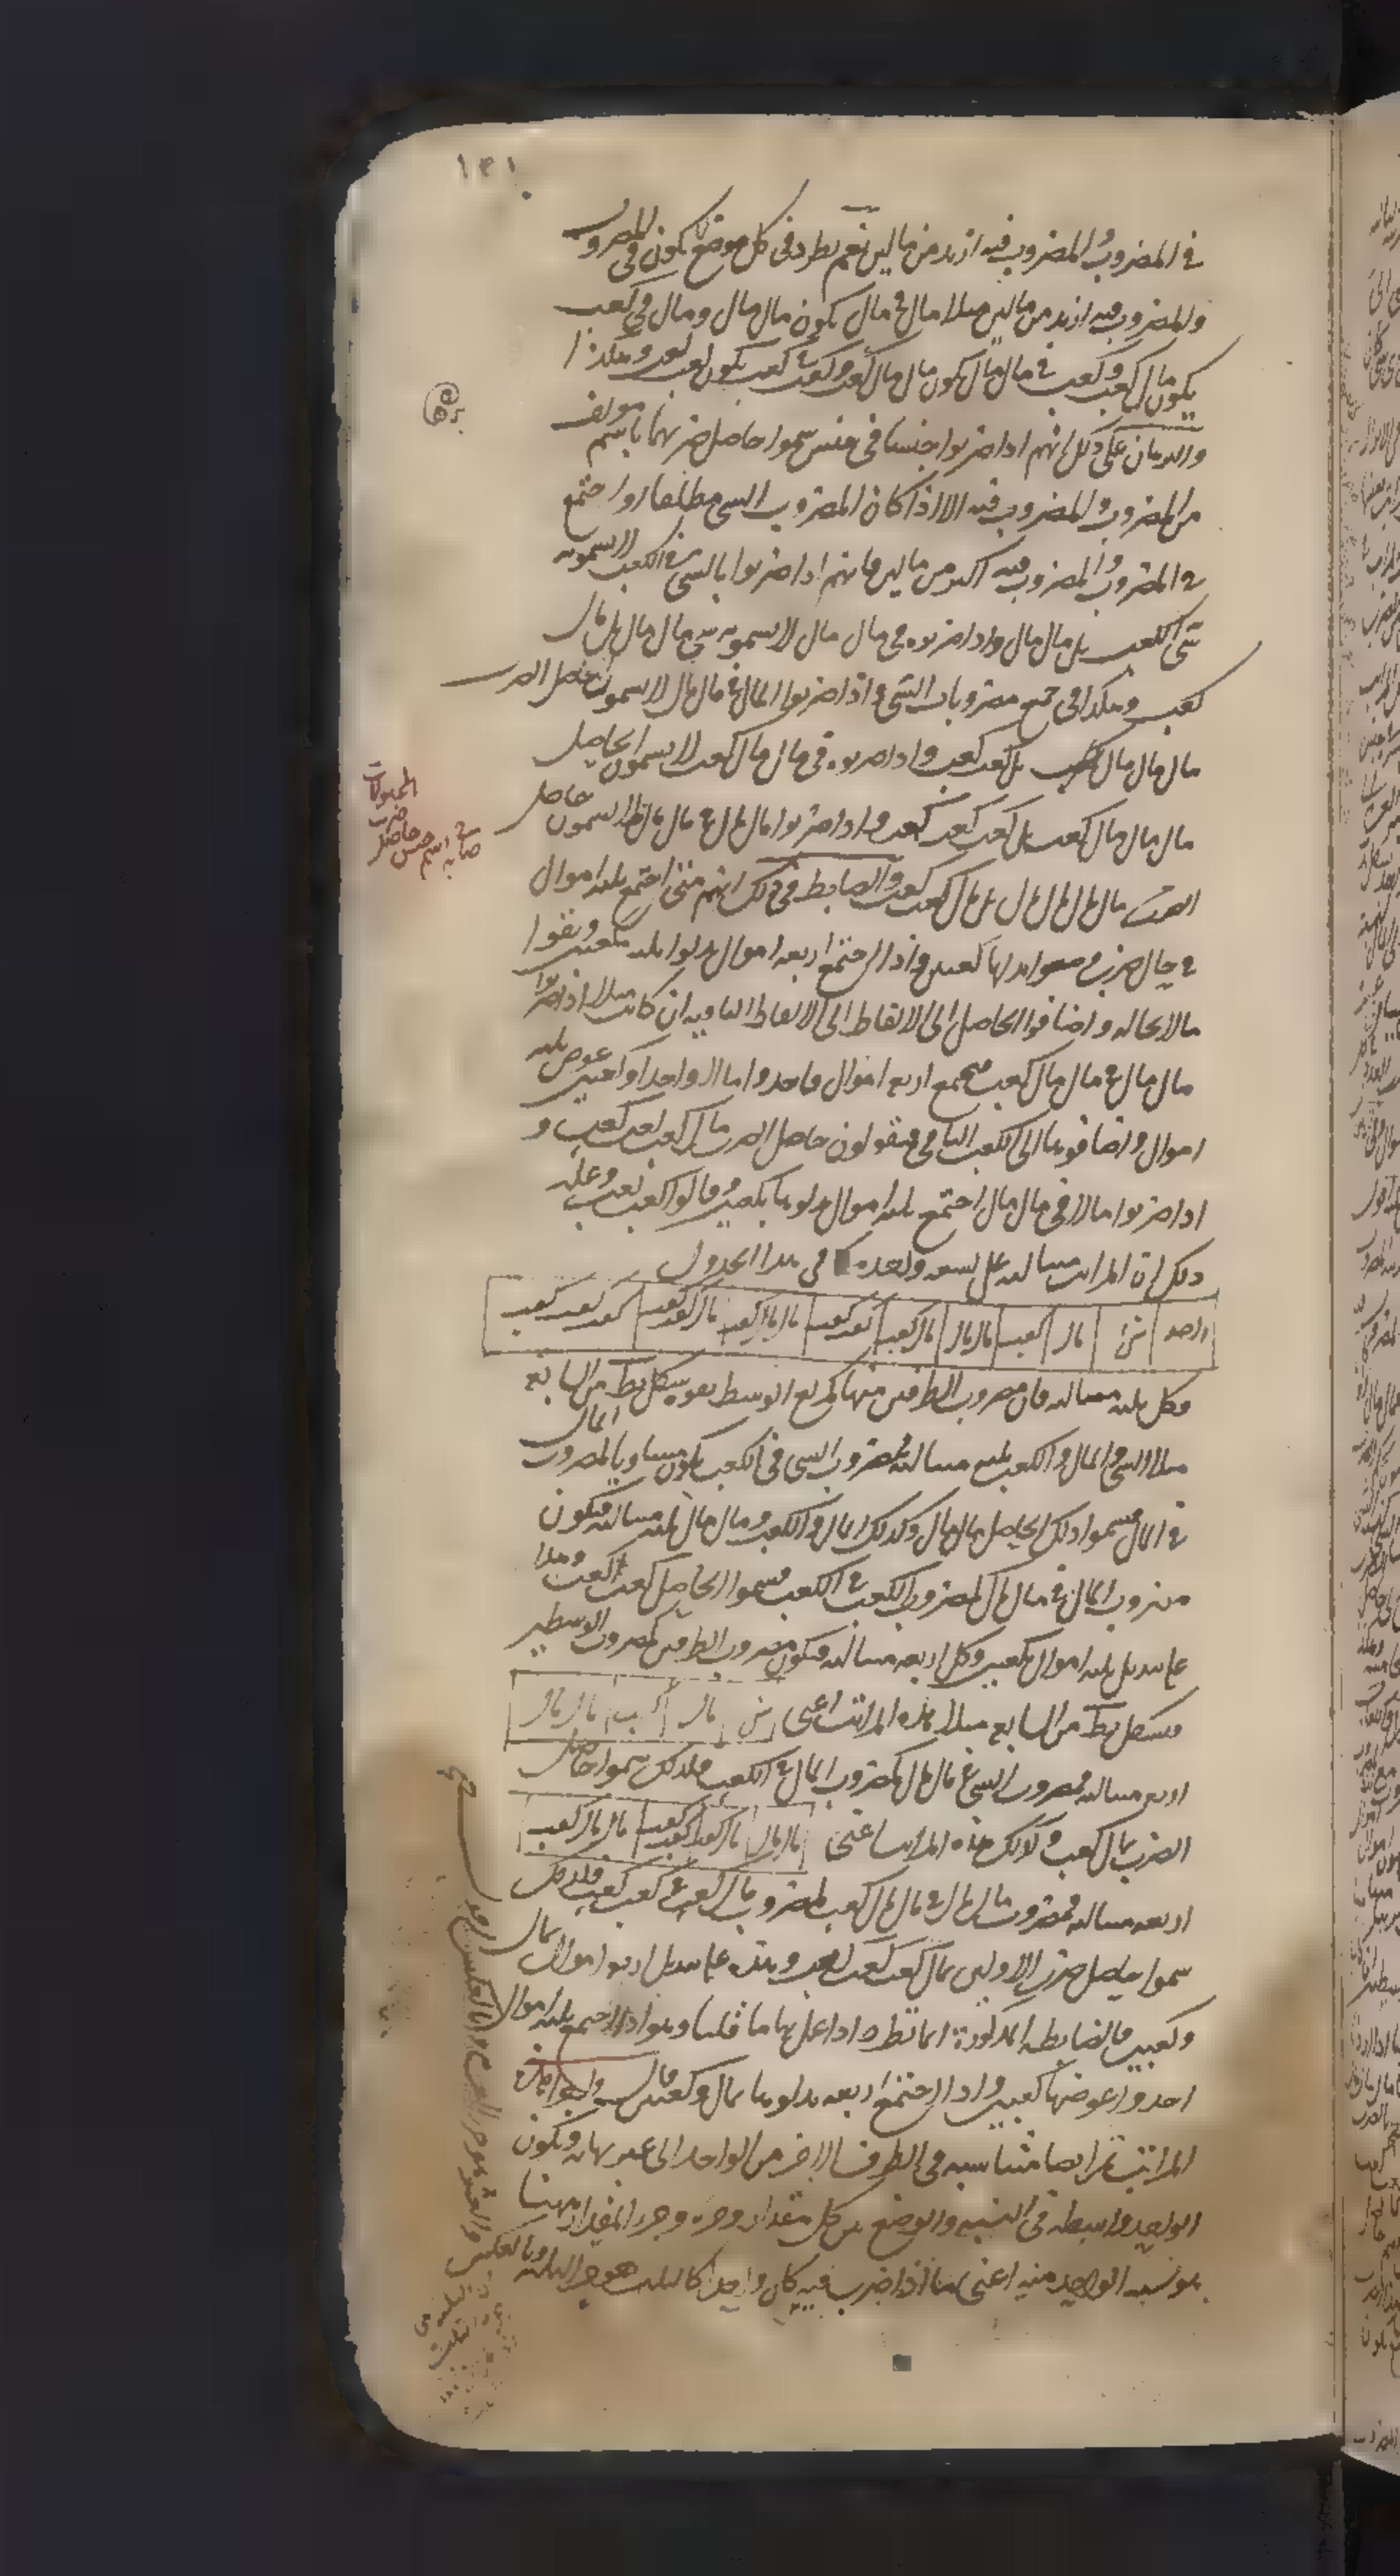 ١٣١
في المضروب والمضروب فيه ازيد من مالين نعم يطرد في كل موضع يكون في المضروب
والمضروب فيه ازيد من مالين مثلا مال في مال يكون مال مال ومال في كعب
يكون مال كعب وكعب في مال مال يكون مال مال كعب وكعب في كعب يكون كعب كعب وهكذا
والبرهان على ذلك انهم اذا ضربوا جنسا في جنس سموا حاصل ضربهما باسم مولف
من المضروب والمضروب فيه الا اذا كان المضروب الشي مطلقا او اجتمع
في المضروب والمضروب فيه اكثر من مالين فانهم اذا ضربوا بالشي في الكعب لا يسمونه
شي الكعب بل مال مال واذا ضربوه في مال مال لا يسمونه شي مال مال بل مال
كعب وهكذا في جميع مضروبات الشي واذا ضربوا المال في مال مال لا يسمون حاصل الضرب
مال مال مال بل كعب كعب واذا ضربوه في مال مال كعب لا يسمون الحاصل
مال مال مال كعب بل كعب كعب كعب واذا ضربوا مال مال في مال مال لا يسمون حاصل
الضرب مال مال مال مال بل مال كعب كعب والضابط في ذلك انهم متى اجتمع ثلثه اموال
في حال ضرب بدلوها كعبين واذا اجتمع اربعه اموال بدلوا ثلثه بكعبين وبقوا
مالا بحاله واضافوا الحاصل الى الالفاظ الباقيه ان كانت مثلا اذا ضربوا
مال مال في مال مال كعب فيجتمع اربع اموال فاخذوا مالا واحدا وكعبين عوض ثلثه
اموال واضافوها الى الكعب الباقي فيقولون حاصل الضرب مال كعب كعب كعب و
اذا ضربوا مالا في مال مال اجتمع ثلثه اموال بدلوها بكعبين وقالوا كعب كعب وعله
ذلك ان المراتب متناسبه على نسبه واحده كما في هذا الجدول
الواحد شئ مال كعب مال مال مال كعب كعب كعب مال مال كعب مال كعب كعب كعب كعب كعب
وكل ثلثه متناسبه فان مضروب الطرفين منها كمربع الوسط بقوه شكل يط من السابعه
مثلا الشي والمال والكعب ثلثه متناسبه فمضروب الشي في الكعب يكون مساويا لمضروب المال
في المال فسموا ذلك الحاصل مال مال وكذلك المال والكعب ومال مال ثلثه متناسبه فيكون
مضروب المال في مال مال كمضروب الكعب في الكعب فسموا الحاصل كعب الكعب وهذا
عله تبديل ثلثه اموال بكعبين وكل اربعه متناسبه فيكون مضروب الطرفين كمضروب الوسطين
بشكل يط من السابعه مثلا هذه المراتب اعني شئ مال كعب مال مال
اربع متناسبه فمضروب الشي في مال مال كمضروب المال في الكعب فلذلك سموا حاصل
الضرب بمال كعب وكذلك هذه المراتب اعني مال مال مال كعب كعب كعب مال مال كعب
اربعه متناسبه فمضروب مال مال في مال مال كعب كمضروب مال كعب في كعب كعب فلذلك
سموا حاصل ضرب الاولين بمال كعب كعب كعب وهذه عله تبديل اربعه اموال بمال
وكعبين فالضابطه المذكورة انما تطرد اذا عمل بها ما قلنا وهو اذا اجتمع ثلثه اموال
اخذوا عوضها كعبين واذا اجتمع اربعه بدلوها بمال وكعبين قال واجزا هذه
المراتب ايضا متناسبه في الطرف الاخر من الواحد الى غير نهايه ويكون
الواحد واسطه في النسبه والوضع بين كل مقدار وجزءه وجزء المقدار ههنا
هو نسبه الواحد منه اعني ما اذا ضرب فيه كان واحدا كالثلث هو جزء الثلثه وبالعكس